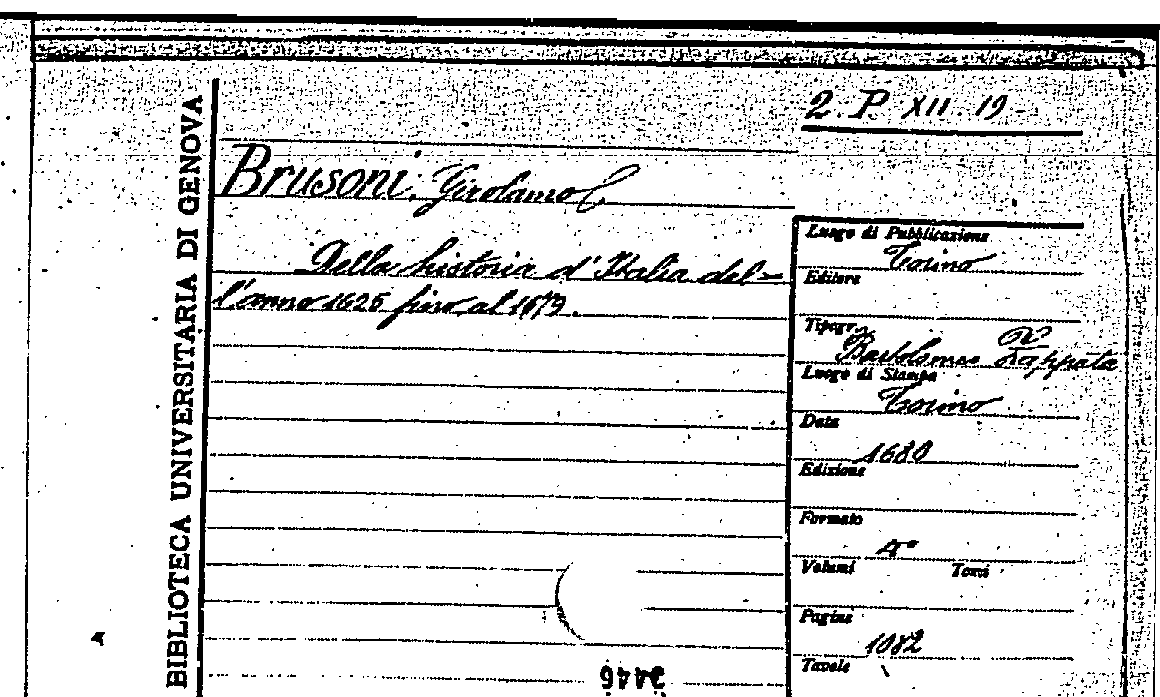 BIBLIOTECA UNIVERSITARIA DI GENOVA
2. P. XII. 19 -
Brusoni, Girolamo
Della historia d'Italia del-
l'anno 1625 fino al 1679.
Luogo di Pubblicazione
Torino
Editore
Tipogr.
Bartolomeo Zappata
Luogo di Stampa
Torino
Data
1680
Edizione
Formato
4°
Volumi Tomi
Pagine
1082
Tavole